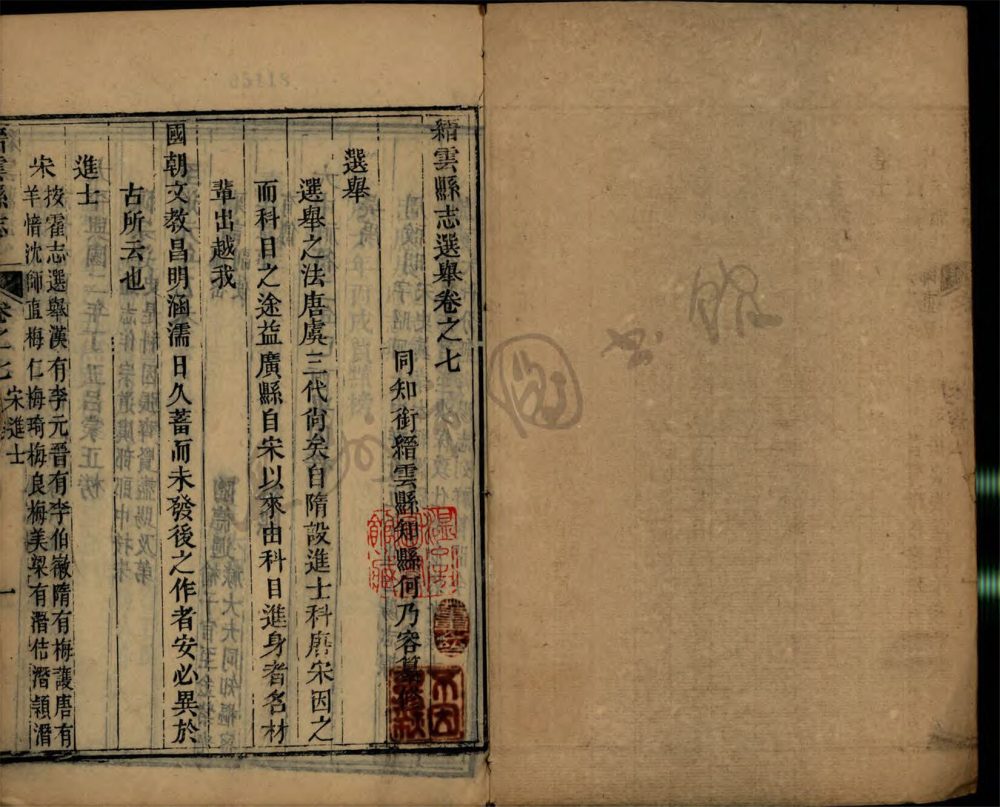 縉雲縣志選舉卷之七
同知銜縉雲縣知縣何乃容纂修
選舉
選舉之法唐虞三代尚矣自隋設進士科唐宋因之
而科目之途益廣縣自宋以來由科目進身者名材
輩出越我
國朝文教昌明涵濡日久蓄而未發後之作者安必異於
古所云也
進士
宋
按霍志選舉漢有李元晉有李伯徽隋有梅護唐有
羊愔沈師直梅仁梅琦梅良梅美梁有潛佶潛潁潛
縉雲縣志
卷之七
宋進士
一
65118